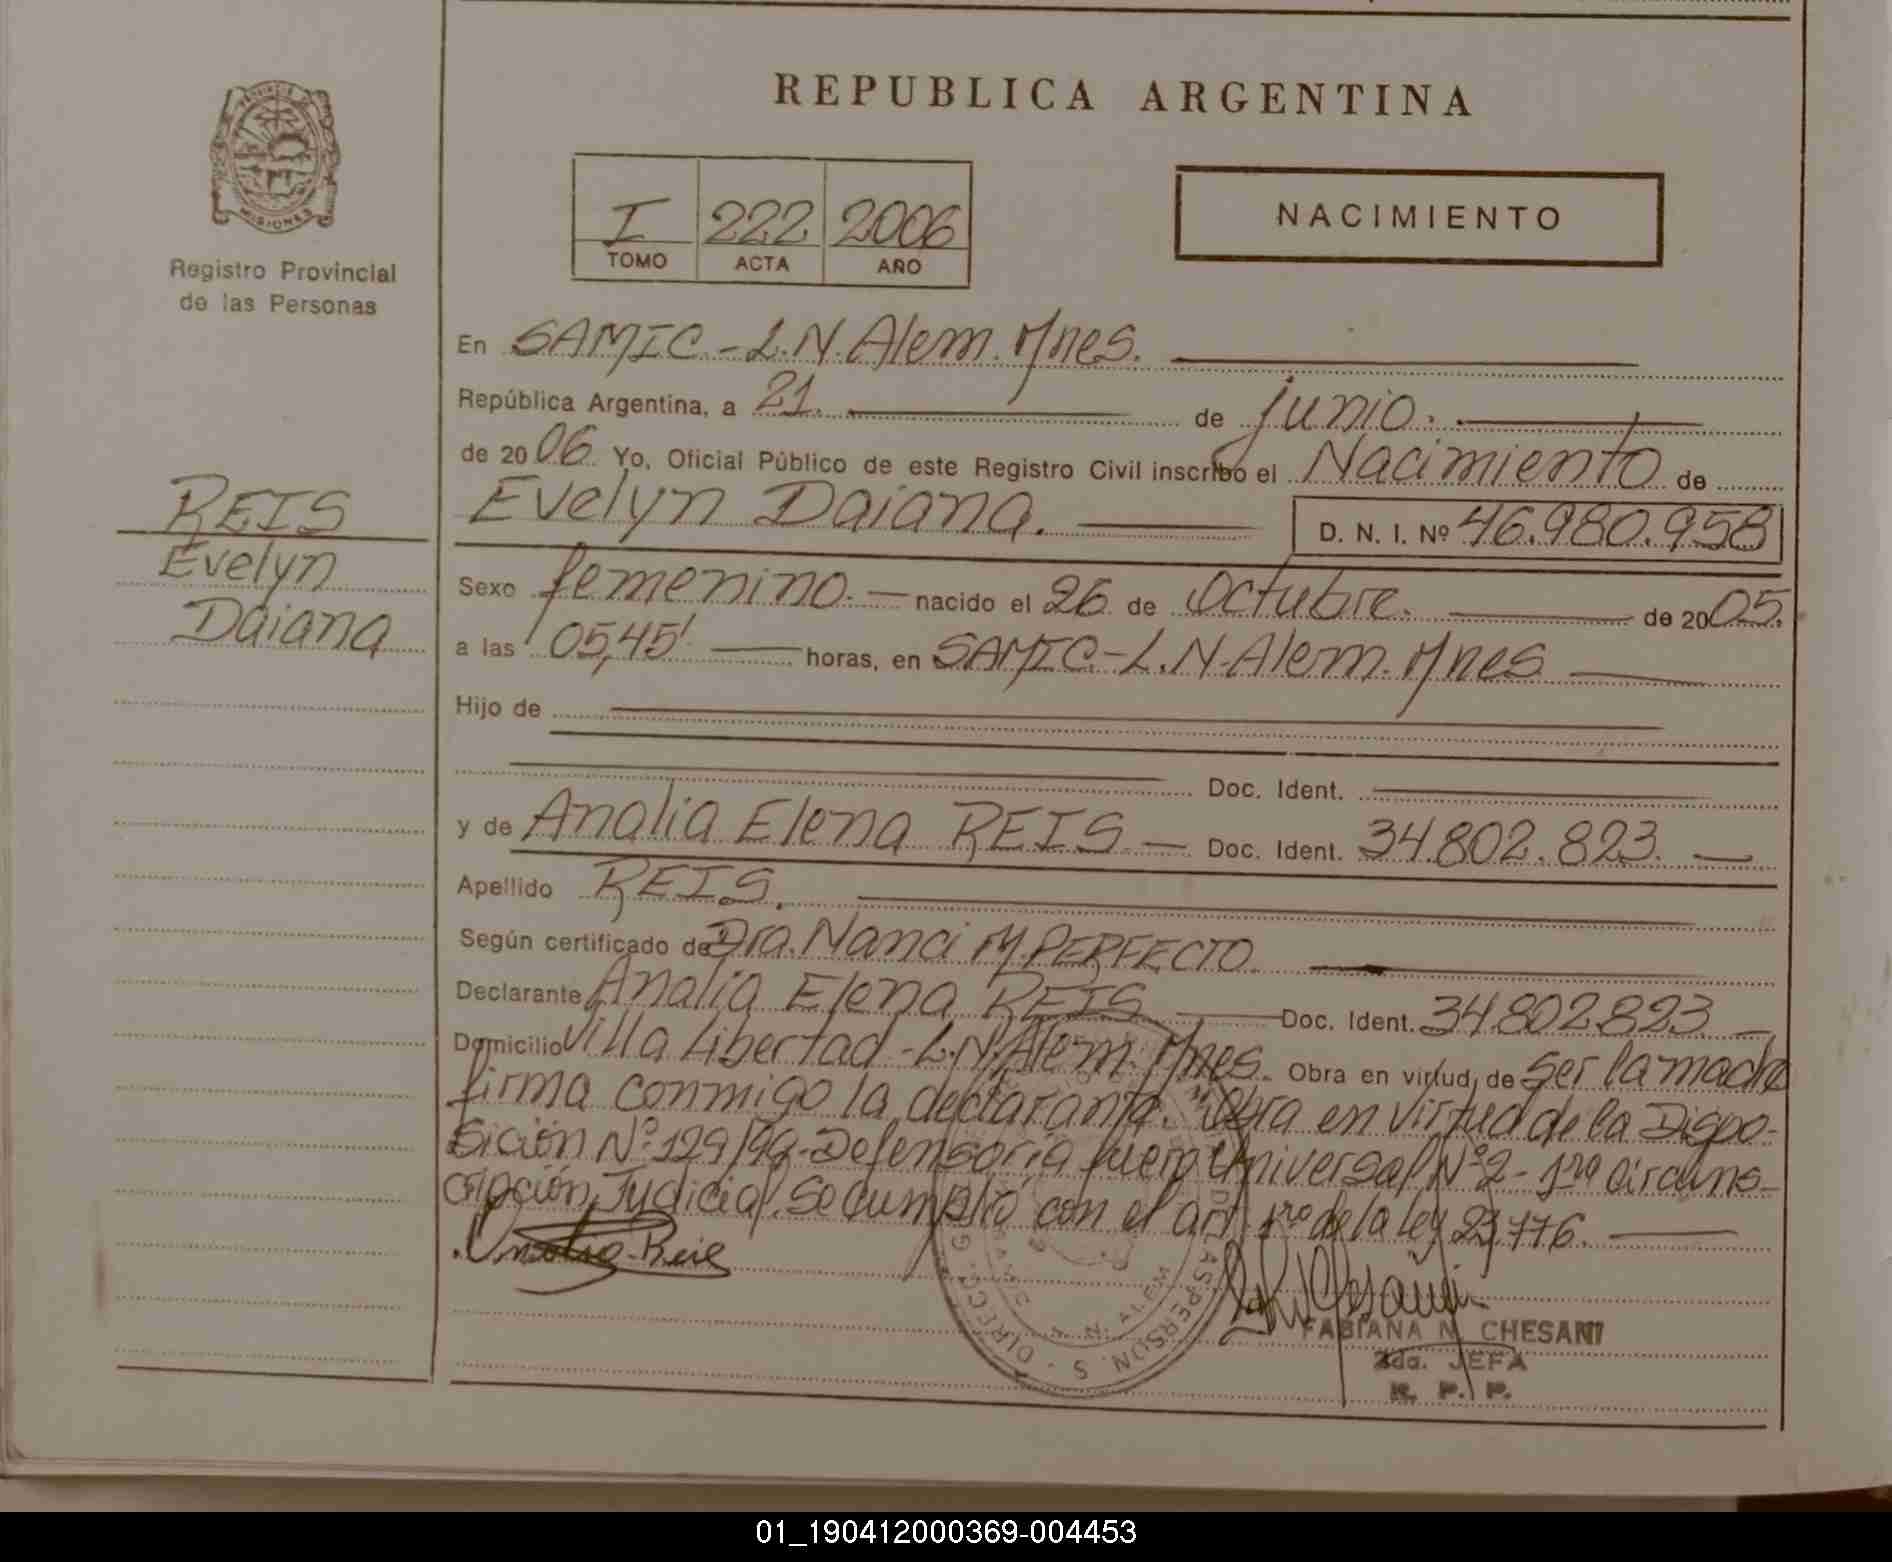 REPUBLICA ARGENTINA
MISIONES
Registro Provincial
de las Personas
I 222 2006
TOMO ACTA AÑO
NACIMIENTO
En SAMIC.-L.N.Alem.Mnes.
República Argentina, a 21. de junio.
de 2006 Yo, Oficial Público de este Registro Civil inscribo el Nacimiento de
Evelyn Daiana. D. N. I. Nº 46.980.958
REIS
Evelyn
Daiana
Sexo femenino.- nacido el 26 de Octubre. de 2005.
a las 05,45' horas, en SAMIC.-L.N.Alem.Mnes
Hijo de
Doc. Ident.
y de Analia Elena REIS.- Doc. Ident. 34.802.823.-
Apellido REIS.
Según certificado de Dra. Nanci M. PERFECTO.
Declarante Analia Elena REIS Doc. Ident. 34.802.823.-
Domicilio Villa Libertad-L.N.Alem.Mnes. Obra en virtud de Ser la madre
firma conmigo la declarante. Obra en virtud de la Dispo-
sición Nº129/99-Defensoría fuero Universal Nº2-1ra circuns-
cripción Judicial. Se cumplió con el art. 1ro de la ley 23.776.
Reis
FABIANA N. CHESANI
2da. JEFA
R. P. P.
01_190412000369-004453